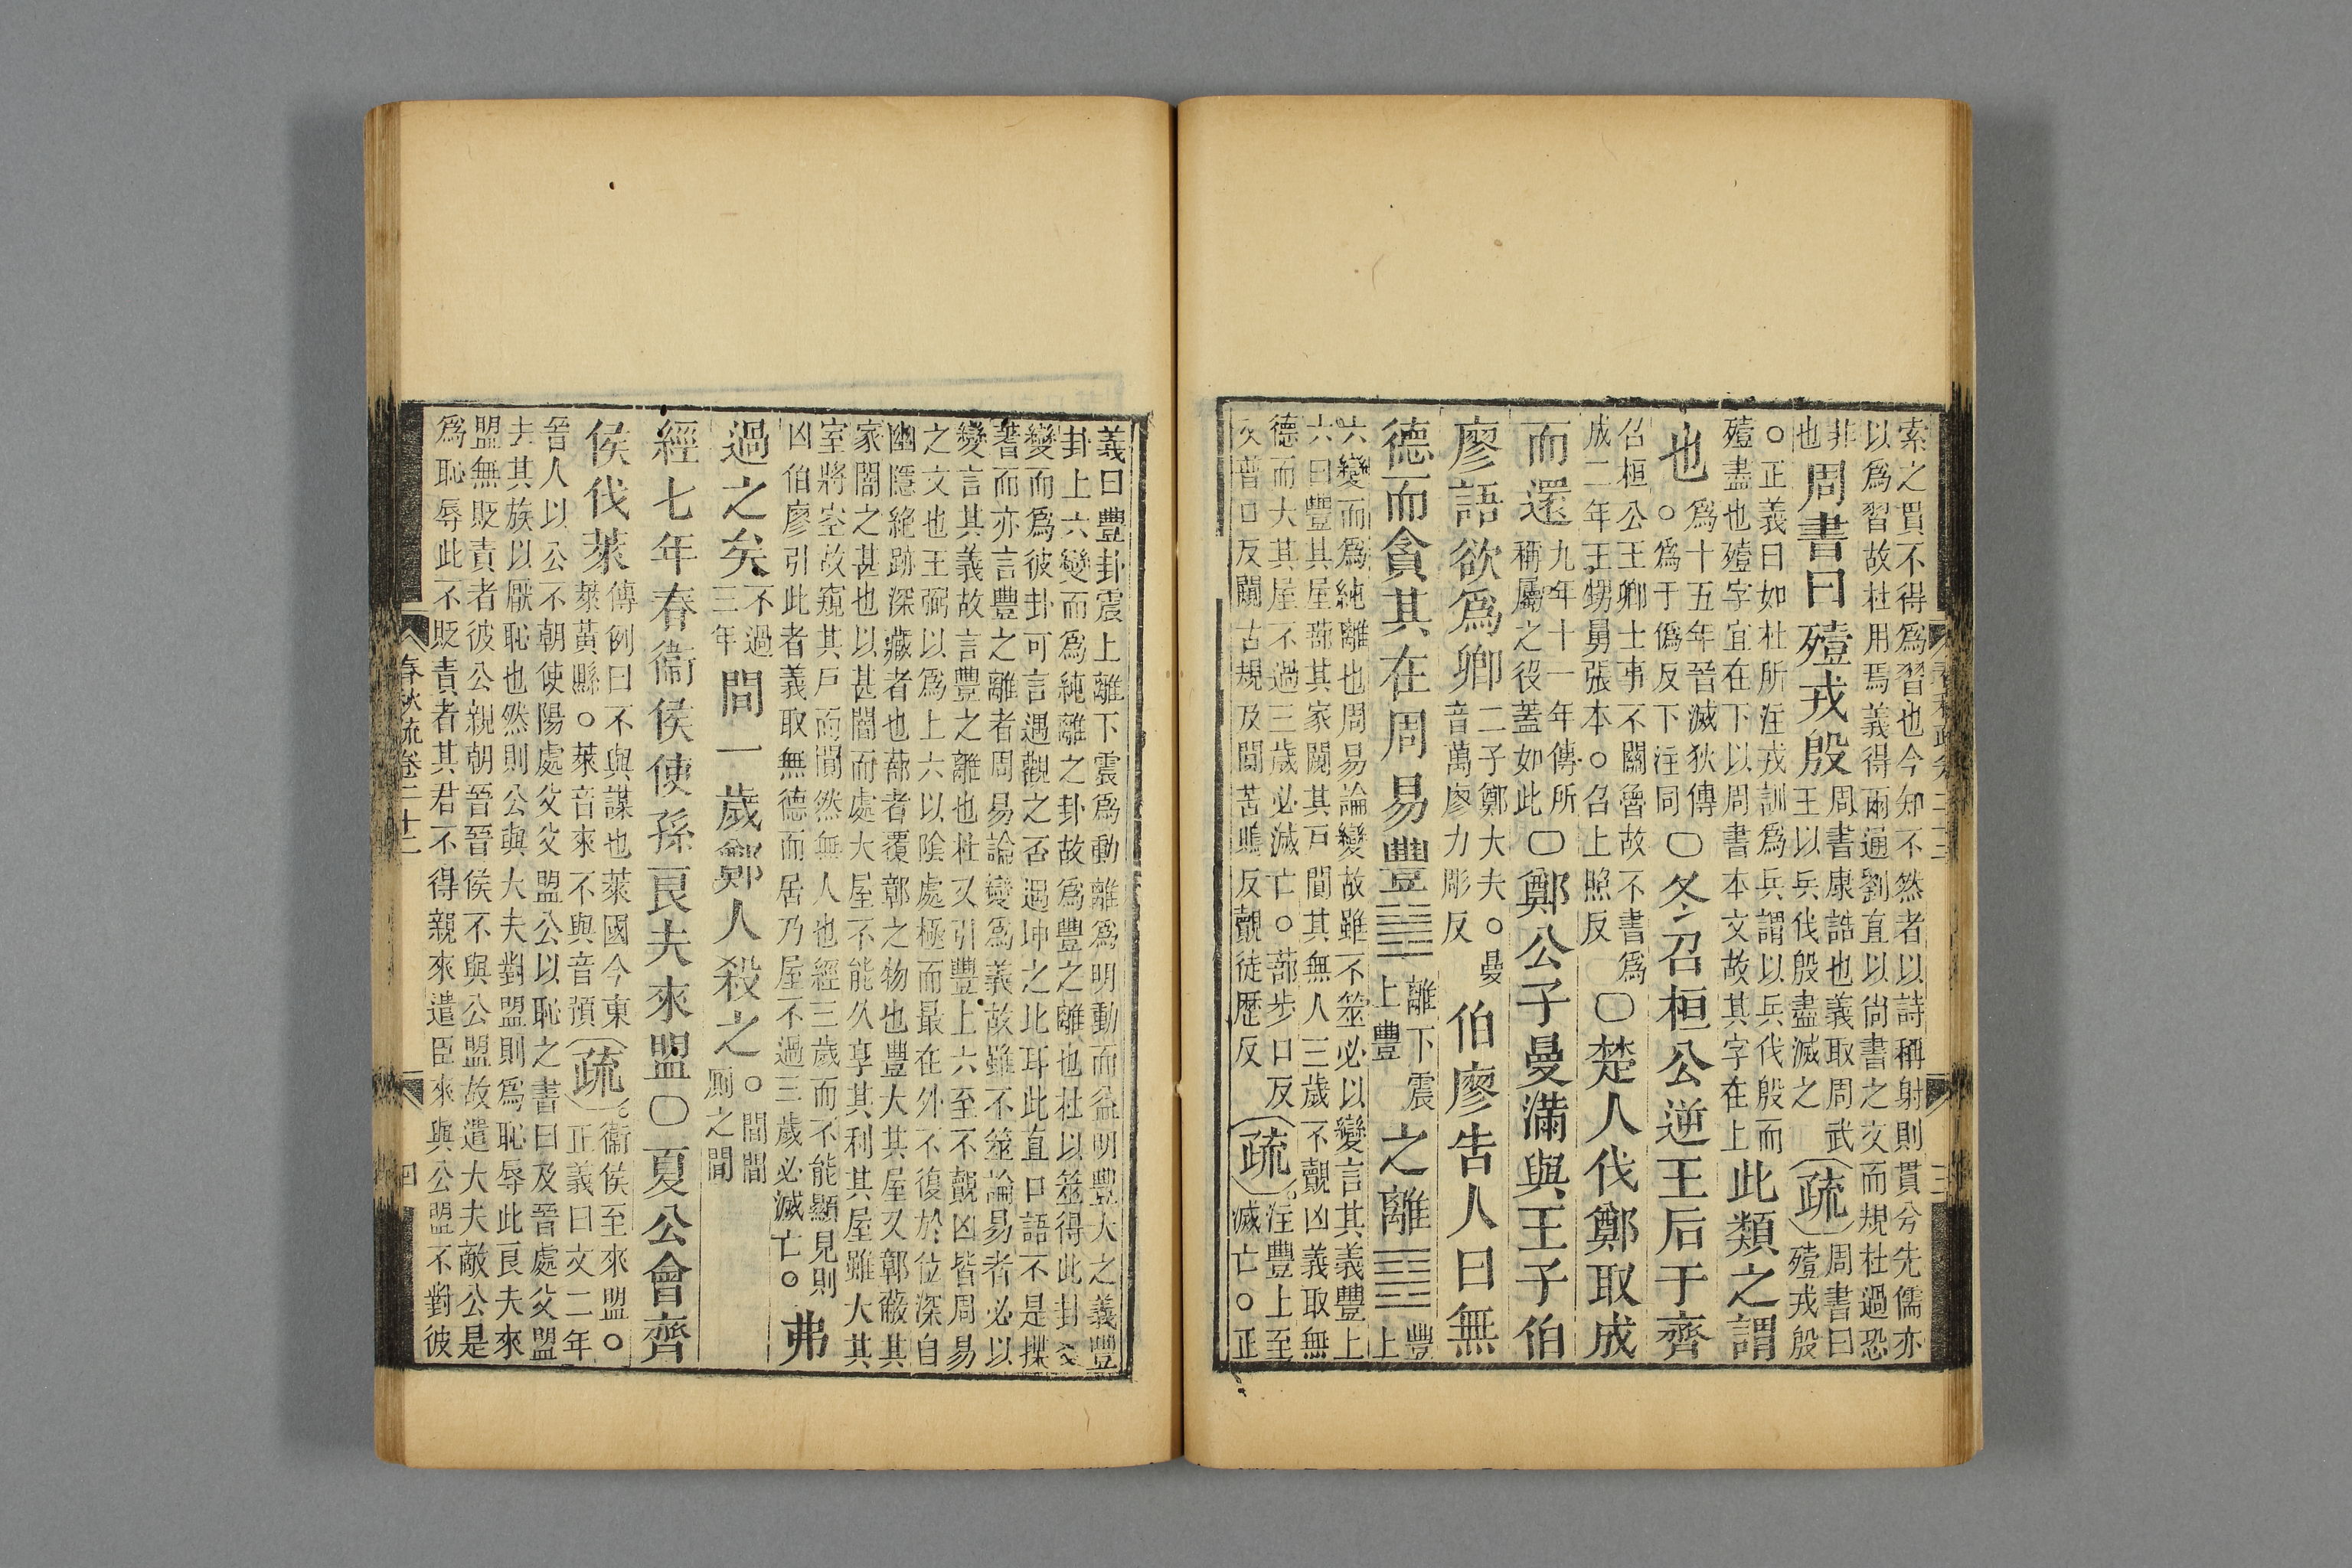 索之貫不得爲習也今知不然者以詩稱射則貫兮先儒亦
以爲習故杜用焉義得兩通劉直以尙書之文而規杜過恐
非
也
周書曰殪戎殷
周書康誥也義取周武
王以兵伐殷盡滅之
疏
周書曰
殪戎殷
○正義曰如杜所注戎訓爲兵謂以兵伐殷而
殪盡也殪字宜在下以周書本文故其字在上
此類之謂
也
爲十五年晉滅狄傳
○爲于僞反下注同
○冬召桓公逆王后于齊
召桓公王卿士事不關魯故不書爲
成二年王甥舅張本○召上照反
○楚人伐鄭取成
而還
九年十一年傳所
稱厲之役蓋如此
○鄭公子曼滿與王子伯
廖語欲爲卿
二子鄭大夫○曼
音萬廖力彫反
伯廖告人曰無
德而貪其在周易豐䷶
離下震
上豐
之離䷝
豐上
六變而爲純離也周易論變故雖不筮必以變言其義豐上
六曰豐其屋蔀其家闚其戸闃其無人三歲不覿凶義取無
德而大其屋不過三歲必滅亡○蔀步口反
又普口反闚古規反闃苦鵙反覿徒歷反
疏
注豐上至
滅亡○正
義曰豐卦震上離下震爲動離爲明動而益明豐大之義豐
卦上六變而爲純離之卦故爲豐之離也杜以筮得此卦爻
變而爲彼卦可言遇觀之否遇坤之比耳此直口語不是揲
蓍而亦言豐之離者周易論變爲義故雖不筮論易者必以
變言其義故言豐之離也杜又引豐上六至不覿凶皆周易
之文也王弼以爲上六以陰處極而最在外不復於位深自
幽隱絶跡深藏者也蔀者覆鄣之物也豐大其屋又鄣蔽其
家闇之甚也以甚闇而處大屋不能久享其利其屋雖大其
室將空故窺其戸而闃然無人也經三歲而不能顯見則
凶伯廖引此者義取無德而居乃屋不過三歲必滅亡○
弗
過之矣
不過
三年
間一歲鄭人殺之
○間間
厠之間
經七年春衞侯使孫良夫來盟○夏公會齊
侯伐萊
傳例曰不與謀也萊國今東
萊黃縣○萊音來不與音預
疏
衞侯至來盟○
正義曰文二年
晉人以公不朝使陽處父盟公以恥之書曰及晉處父盟
去其族以厭恥也然則公與大夫對盟則爲恥辱此良夫來
盟無貶責者彼公親朝晉晉侯不與公盟故遣大夫敵公是
爲恥辱此不貶責者其君不得親來遣臣來與公盟不對彼
春秋疏卷二十二
四